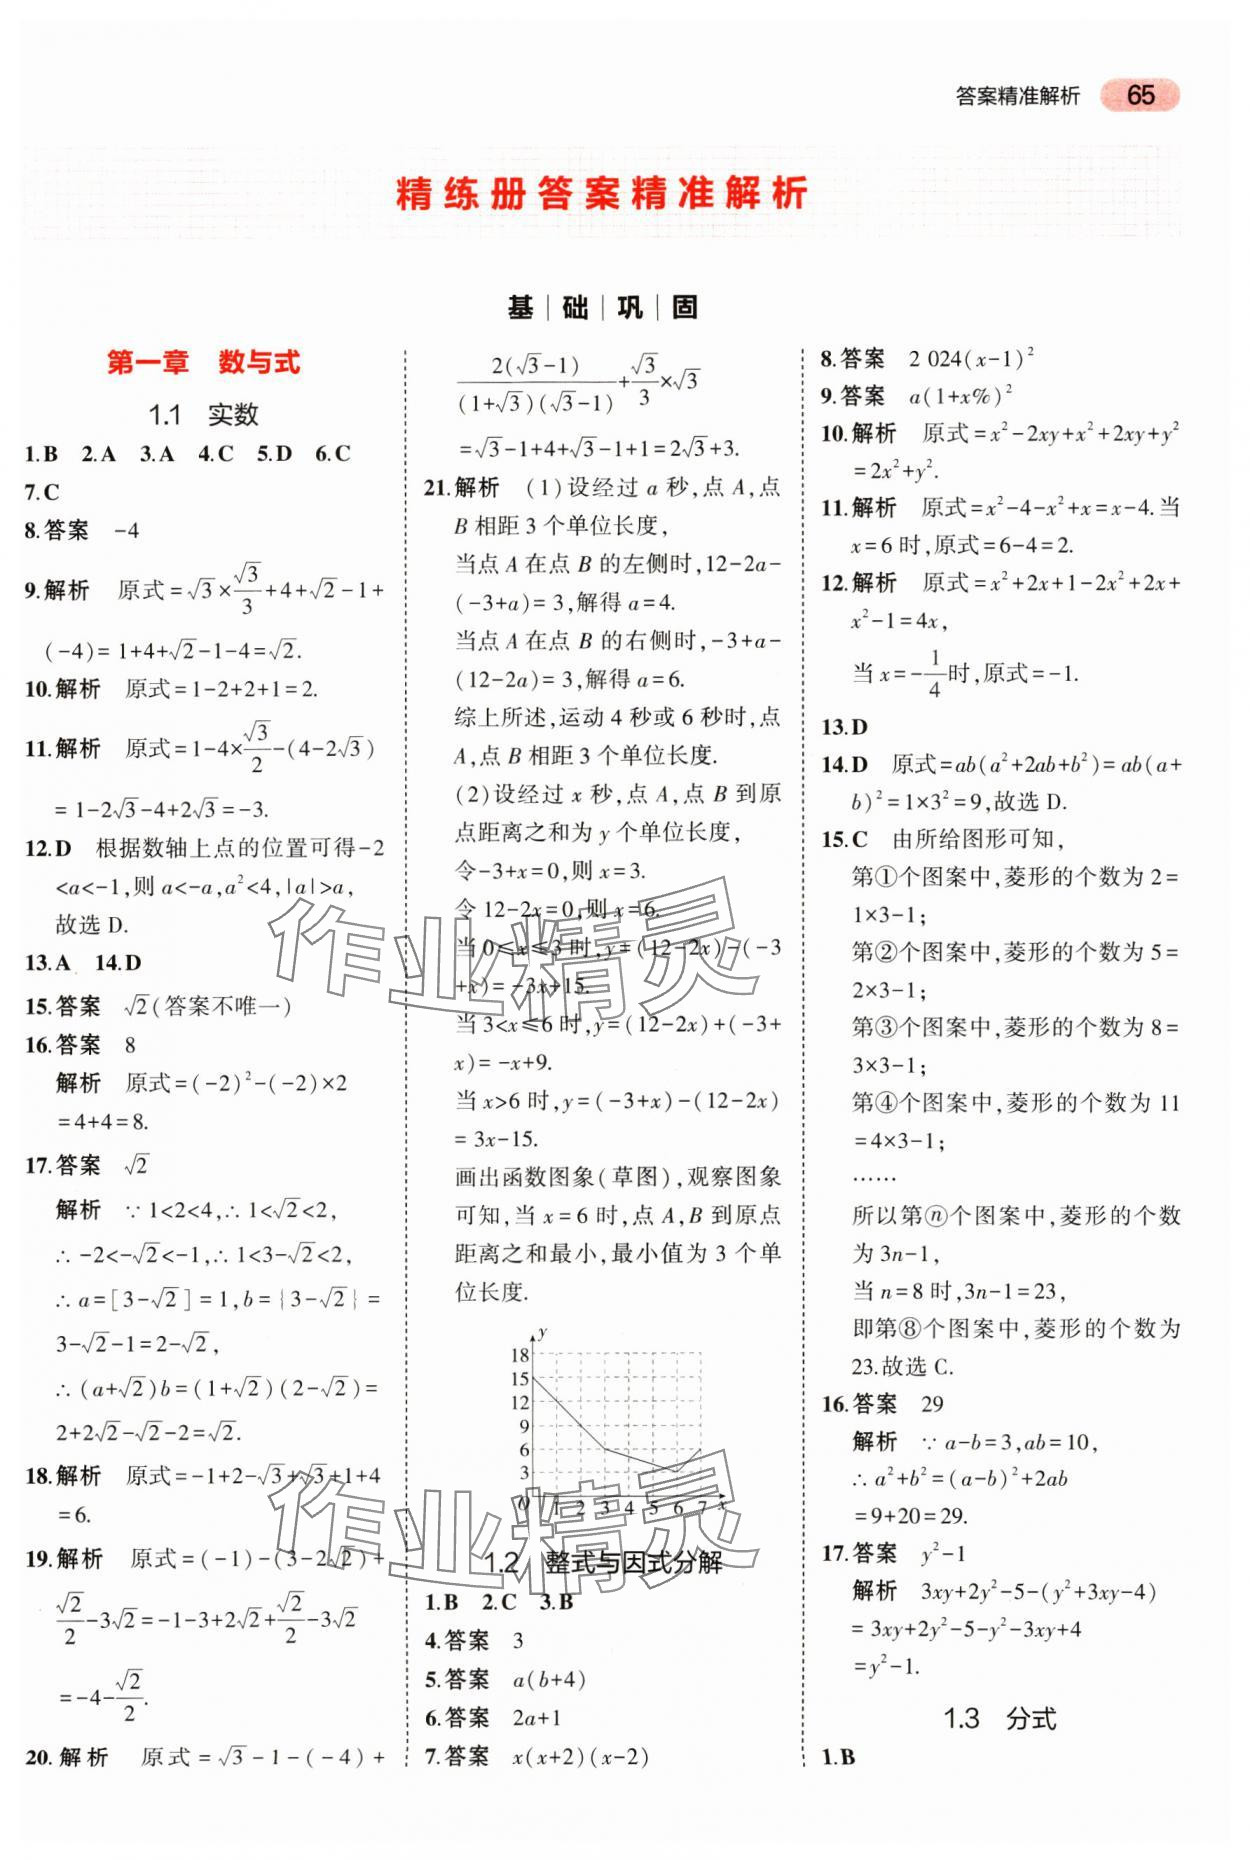 答案精准解析 65
精练册答案精准解析
基｜础｜巩｜固
第一章 数与式
1.1 实数
1.B 2.A 3.A 4.C 5.D 6.C
7.C
8.答案 -4
9.解析 原式=√3×√3/3+4+√2-1+
(-4)=1+4+√2-1-4=√2.
10.解析 原式=1-2+2+1=2.
11.解析 原式=1-4×√3/2-(4-2√3)
=1-2√3-4+2√3=-3.
12.D 根据数轴上点的位置可得-2
<a<-1,则a<-a,a²<4,|a|>a,
故选D.
13.A 14.D
15.答案 √2(答案不唯一)
16.答案 8
解析 原式=(-2)²-(-2)×2
=4+4=8.
17.答案 √2
解析 ∵1<2<4,∴1<√2<2,
∴-2<-√2<-1,∴1<3-√2<2,
∴a=[3-√2]=1,b={3-√2}=
3-√2-1=2-√2,
∴(a+√2)b=(1+√2)(2-√2)=
2+2√2-√2-2=√2.
18.解析 原式=-1+2-√3+√3+1+4
=6.
19.解析 原式=(-1)-(3-2√2)+
√2/2-3√2=-1-3+2√2+√2/2-3√2
=-4-√2/2.
20.解析 原式=√3-1-(-4)+
2(√3-1)/(1+√3)(√3-1)+√3/3×√3
=√3-1+4+√3-1+1=2√3+3.
21.解析 (1)设经过a秒,点A,点
B相距3个单位长度,
当点A在点B的左侧时,12-2a-
(-3+a)=3,解得a=4.
当点A在点B的右侧时,-3+a-
(12-2a)=3,解得a=6.
综上所述,运动4秒或6秒时,点
A,点B相距3个单位长度.
(2)设经过x秒,点A,点B到原
点距离之和为y个单位长度,
令-3+x=0,则x=3.
令12-2x=0,则x=6.
当0≤x≤3时,y=(12-2x)-(-3
+x)=-3x+15.
当3<x≤6时,y=(12-2x)+(-3+
x)=-x+9.
当x>6时,y=(-3+x)-(12-2x)
=3x-15.
画出函数图象(草图),观察图象
可知,当x=6时,点A,B到原点
距离之和最小,最小值为3个单
位长度.
y
18
15
12
9
6
3
O 1 2 3 4 5 6 7 x
1.2 整式与因式分解
1.B 2.C 3.B
4.答案 3
5.答案 a(b+4)
6.答案 2a+1
7.答案 x(x+2)(x-2)
8.答案 2 024(x-1)²
9.答案 a(1+x%)²
10.解析 原式=x²-2xy+x²+2xy+y²
=2x²+y².
11.解析 原式=x²-4-x²+x=x-4.当
x=6时,原式=6-4=2.
12.解析 原式=x²+2x+1-2x²+2x+
x²-1=4x,
当x=-1/4时,原式=-1.
13.D
14.D 原式=ab(a²+2ab+b²)=ab(a+
b)²=1×3²=9,故选D.
15.C 由所给图形可知,
第①个图案中,菱形的个数为2=
1×3-1;
第②个图案中,菱形的个数为5=
2×3-1;
第③个图案中,菱形的个数为8=
3×3-1;
第④个图案中,菱形的个数为11
=4×3-1;
……
所以第ⓝ个图案中,菱形的个数
为3n-1,
当n=8时,3n-1=23,
即第⑧个图案中,菱形的个数为
23.故选C.
16.答案 29
解析 ∵a-b=3,ab=10,
∴a²+b²=(a-b)²+2ab
=9+20=29.
17.答案 y²-1
解析 3xy+2y²-5-(y²+3xy-4)
=3xy+2y²-5-y²-3xy+4
=y²-1.
1.3 分式
1.B
作业精灵
作业精灵